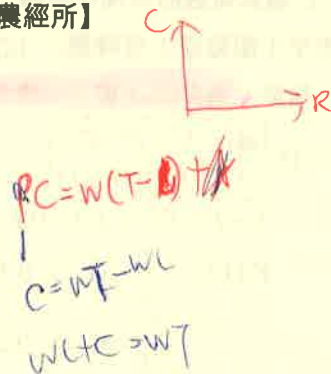 農經所】
C
R
PC=W(T-
C=WT-WL
WL+C=WT